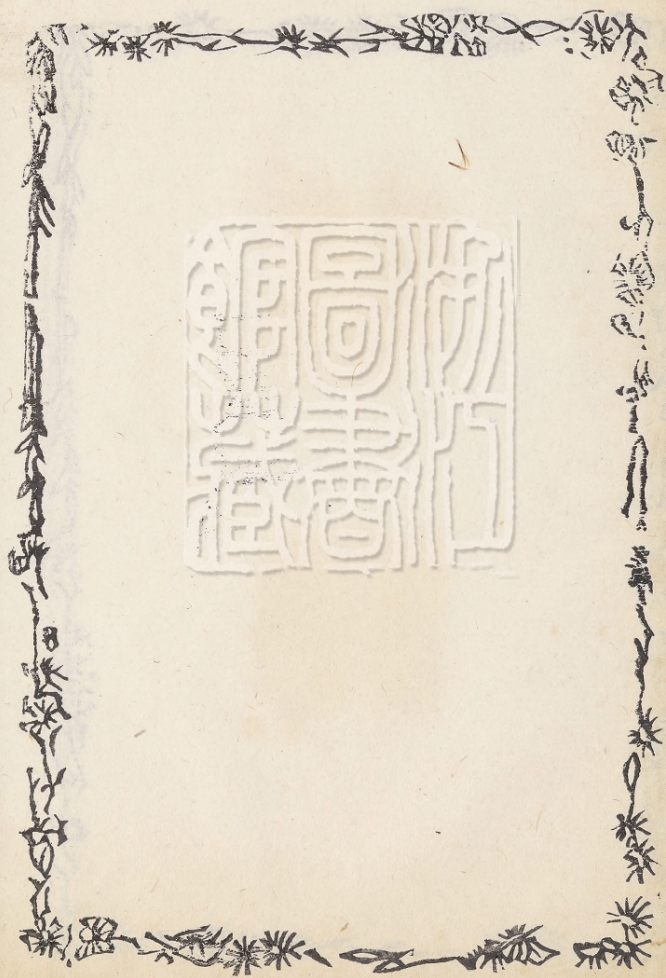 浙江
圖書
館藏